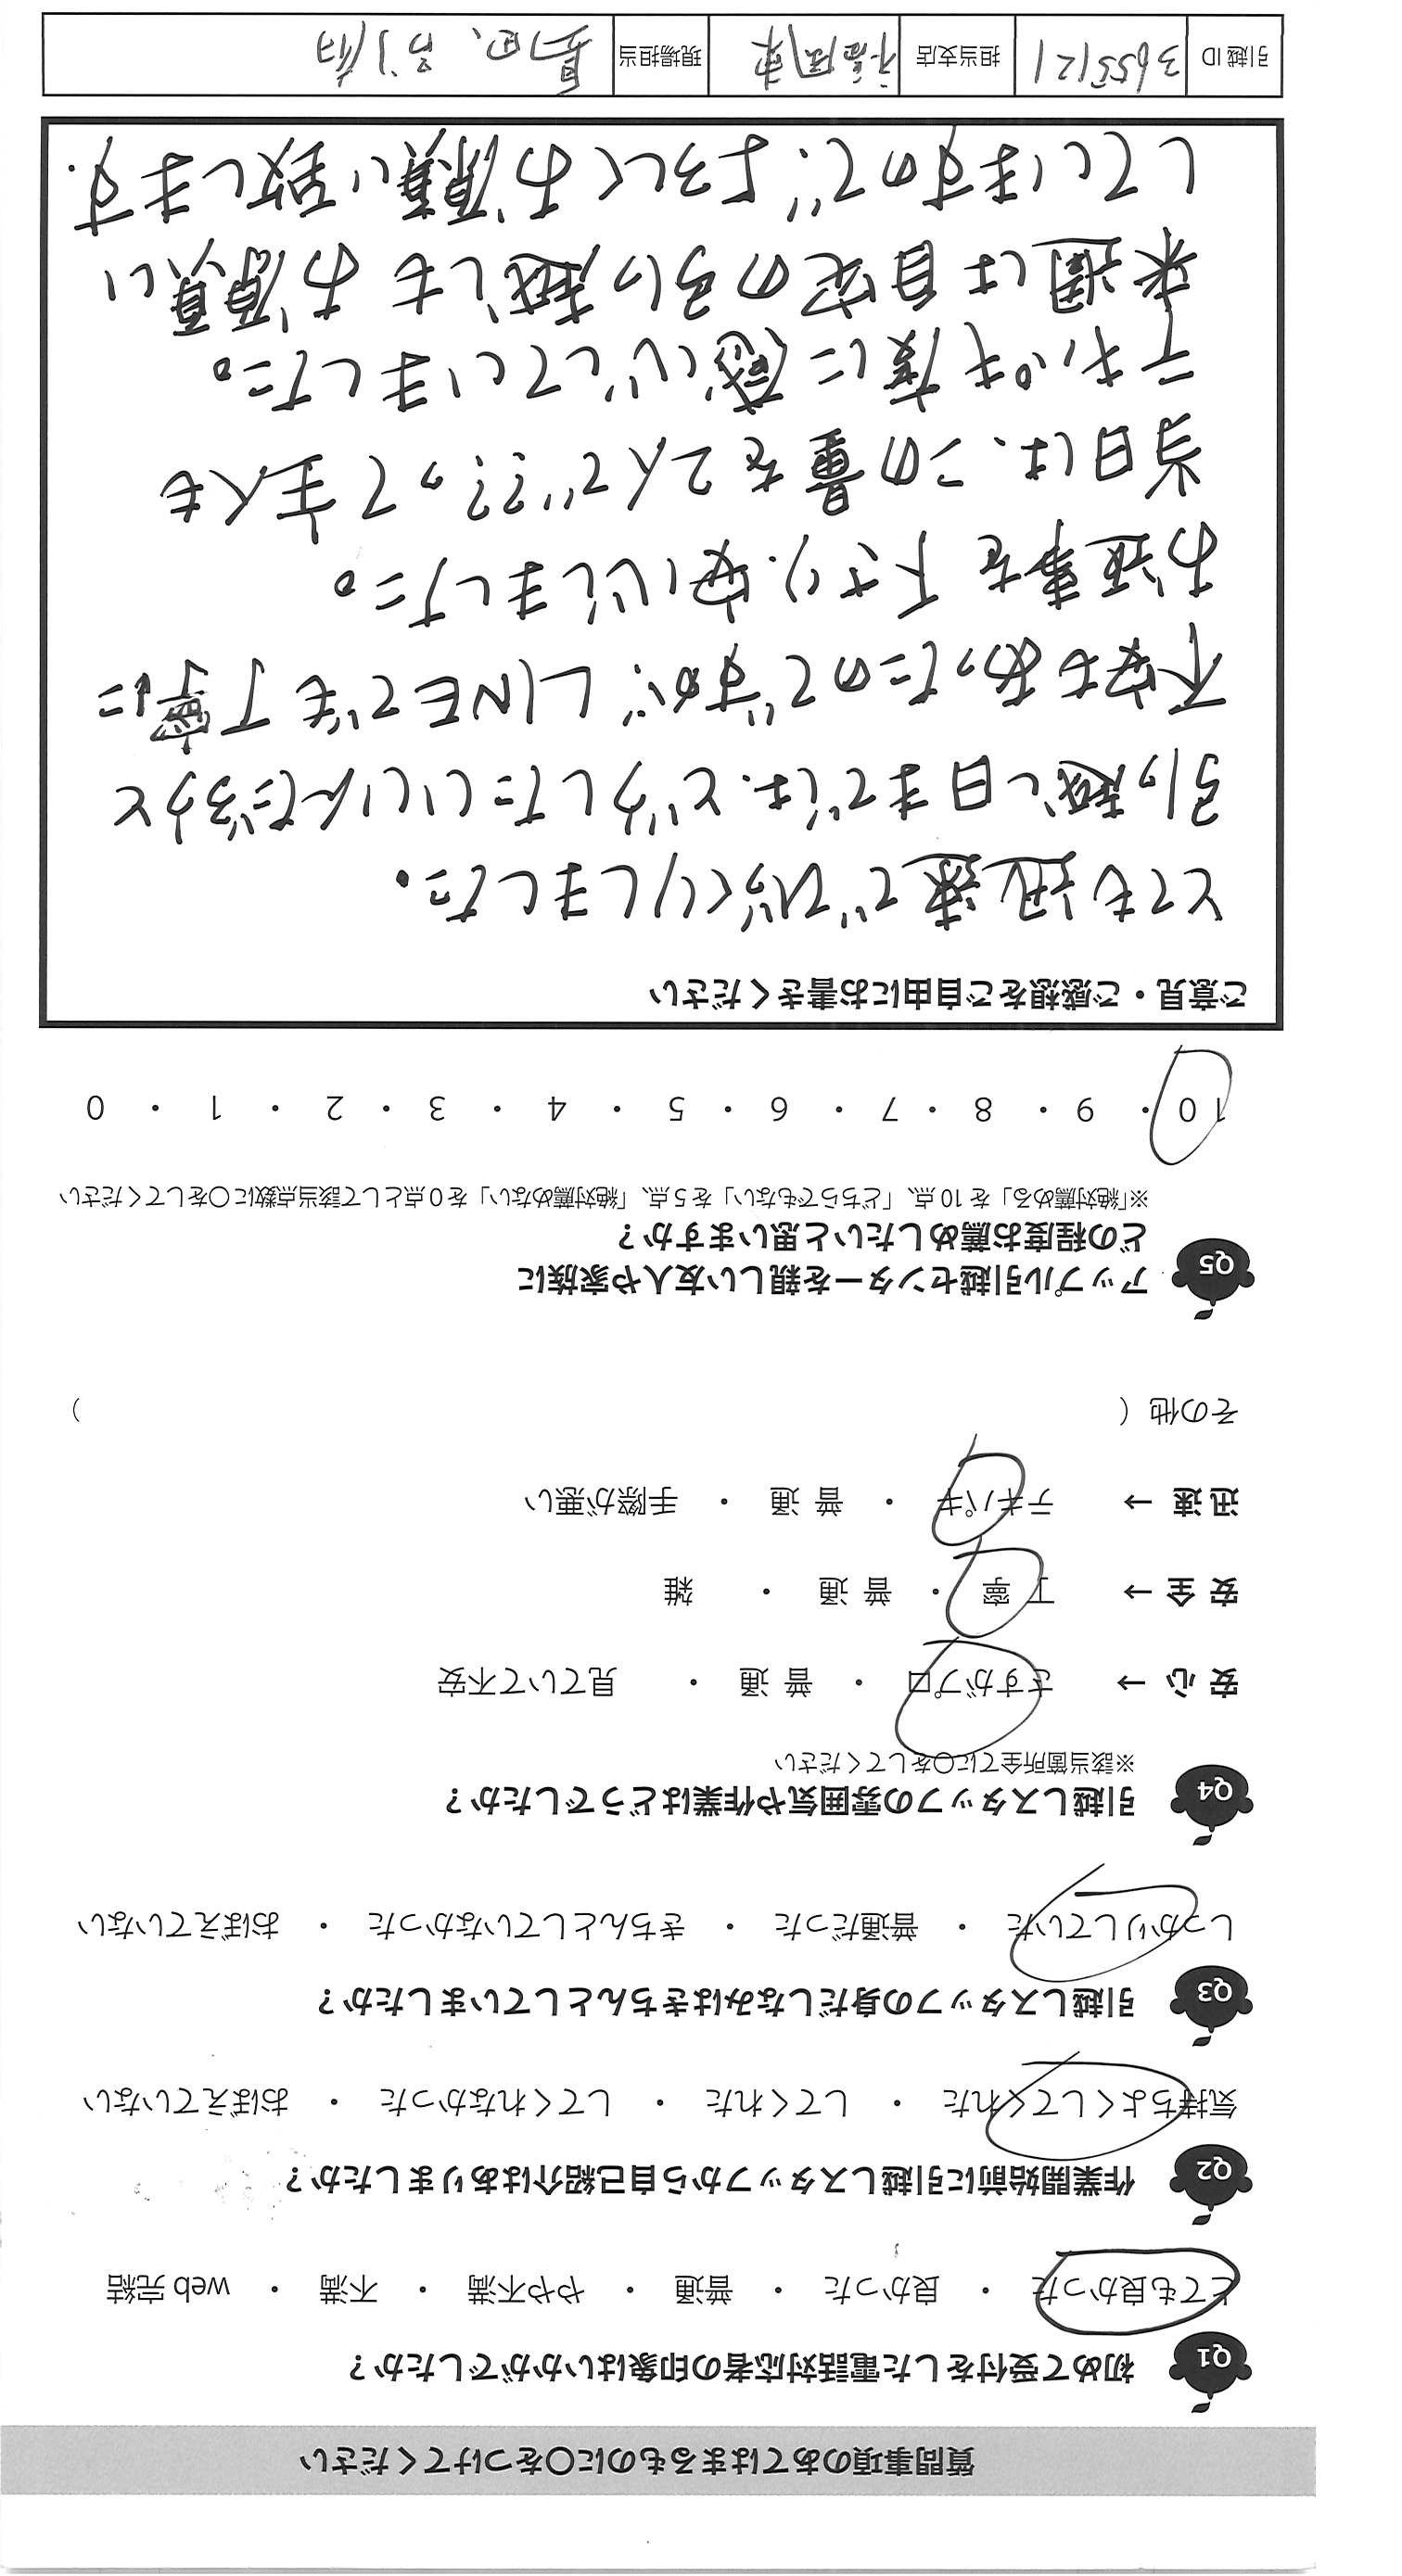 質問事項のあてはまるものに○をつけてください
Q1 初めて受付をした電話対応者の印象はいかがでしたか?
とても良かった ・ 良かった ・ 普通 ・ やや不満 ・ 不満 ・ web 完結
Q2 作業開始前に引越しスタッフから自己紹介はありましたか?
気持ちよくしてくれた ・ してくれた ・ してくれなかった ・ おぼえていない
Q3 引越しスタッフの身だしなみはきちんとしていましたか?
しっかりしていた ・ 普通だった ・ きちんとしていなかった ・ おぼえていない
Q4 引越しスタッフの雰囲気や作業はどうでしたか?
※該当箇所全てに○をしてください
安心 → さすがプロ ・ 普通 ・ 見ていて不安
安全 → 丁寧 ・ 普通 ・ 雑
迅速 → テキパキ ・ 普通 ・ 手際が悪い
その他 ( )
Q5 アップル引越センターを親しい友人や家族に
どの程度お薦めしたいと思いますか?
※「絶対薦める」を 10 点、「どちらでもない」を 5 点、「絶対薦めない」を 0 点として該当点数に○をしてください
10 ・ 9 ・ 8 ・ 7 ・ 6 ・ 5 ・ 4 ・ 3 ・ 2 ・ 1 ・ 0
ご意見・ご感想をご自由にお書きください
とても迅速でびっくりしました。
引っ越し日までは、どうしたらいいんだろうと
不安もあったのですが、LINEでも丁寧に
お返事を下さり、安心しました。
当日は、この量を2人で??って主人も
テキパキ様に感心していました。
来週は自宅の引っ越しもお願い
していますので、よろしくお願い致します.
引越 ID 3655121 担当支店 現場担当